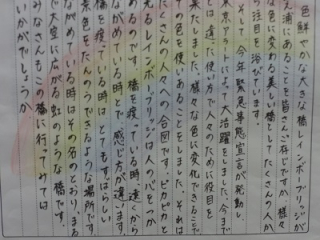 色鮮やかな大きな橋レインボーブリッジが
浦にあることを皆さんご存じですか。様々
な色に変わる美しい橋としてたくさんの人か
の注目を浴びています。
そして今年緊急事態宣言が発動し、
東京アラートによって大活躍をしました。今まで
とは違った使い方で人々のために役目を
果たしました。様々な色に変化できることで
の色を使いあることをしました。それは
たくさんの人々への合図です。ピカピカと
光るレインボーブリッジは人の心をつか
あるのです。橋を渡っている時、遠くから
ながめている時とで感じ方が違います。
橋を渡っている時はとてもすばらしい
景色をたんのうできるような場所です。
ながめている時はその名のとおり、まる
で大空に広がる虹のような橋です。
みなさんもこの橋に行ってみては
いかがでしょうか